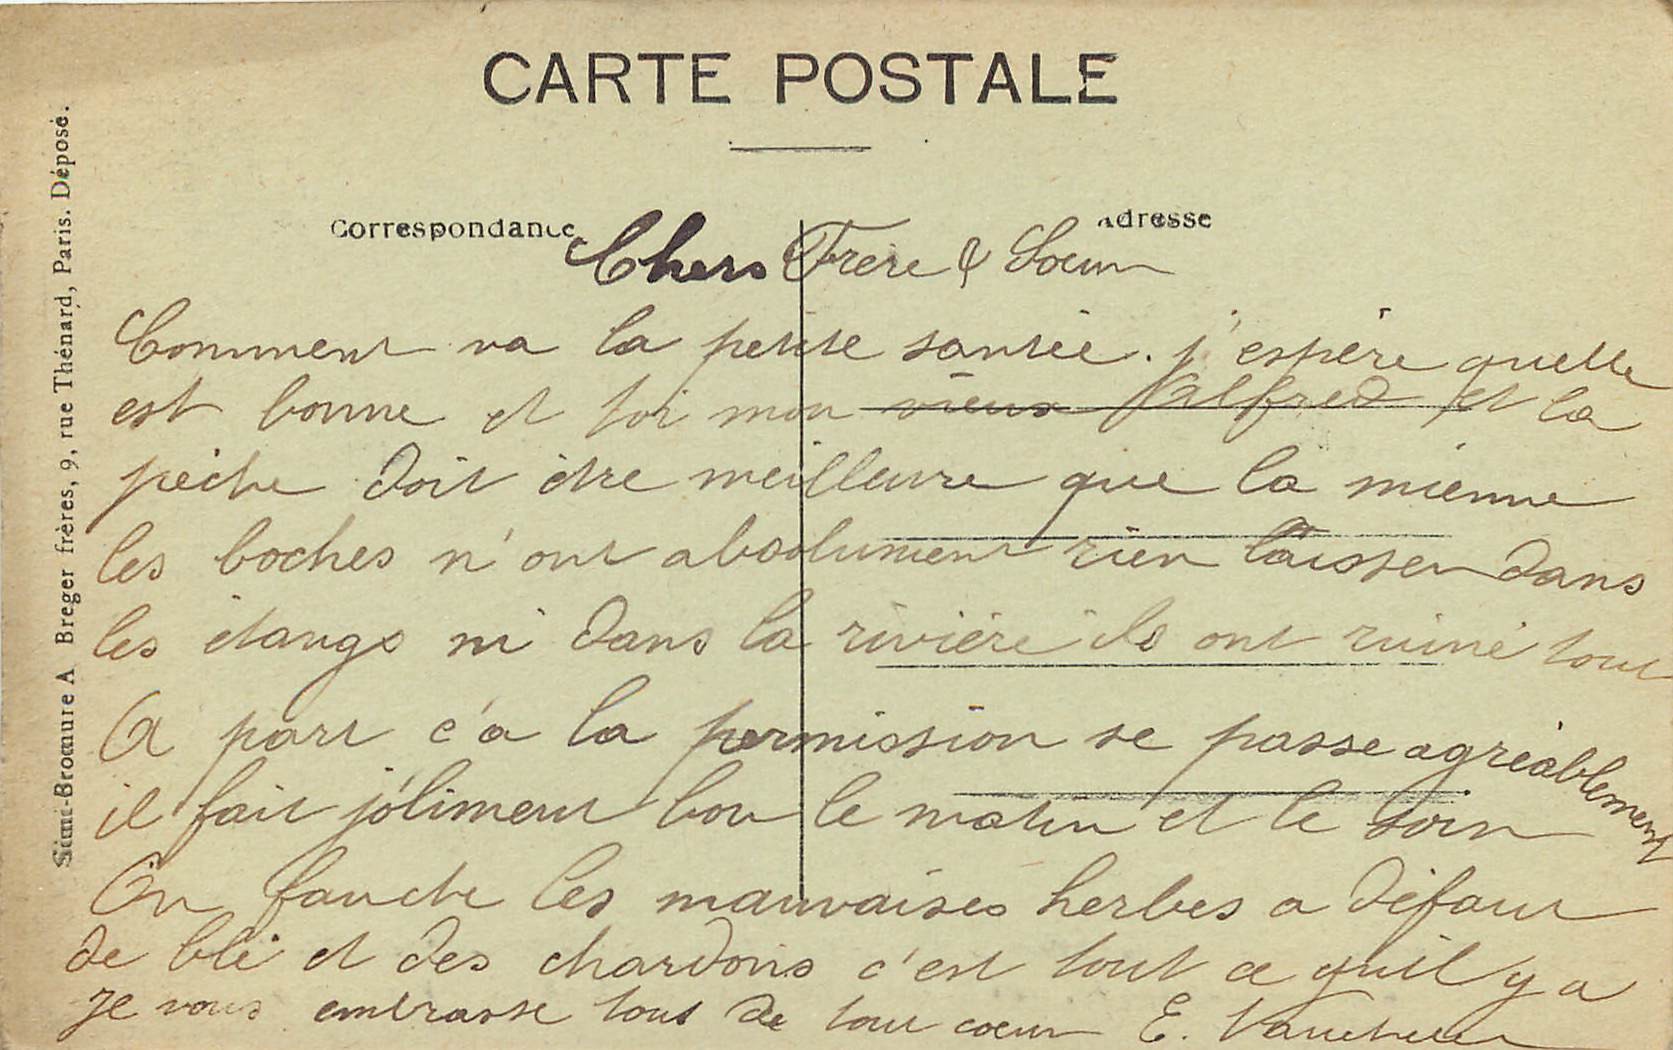 CARTE POSTALE
Correspondance
Adresse
Simi-Bromure A Breger frères, 9, rue Thénard, Paris. Déposé.
Chers Frère & Soeur
Comment va la petite santée. j'espère quelle
est bonne et toi mon vieux Alfred et la
pêche doit être meilleure que la mienne
les boches n'ont absolument rien laisser dans
les étangs ni dans la rivière ils ont ruiné tout
A part c'a la permission se passe agréablement
il fait joliment bon le matin et le soir
On fauche les mauvaises herbes a défaut
de blé et des chardons c'est tout ce quil y a
Je vous embrasse tous de tout coeur E.